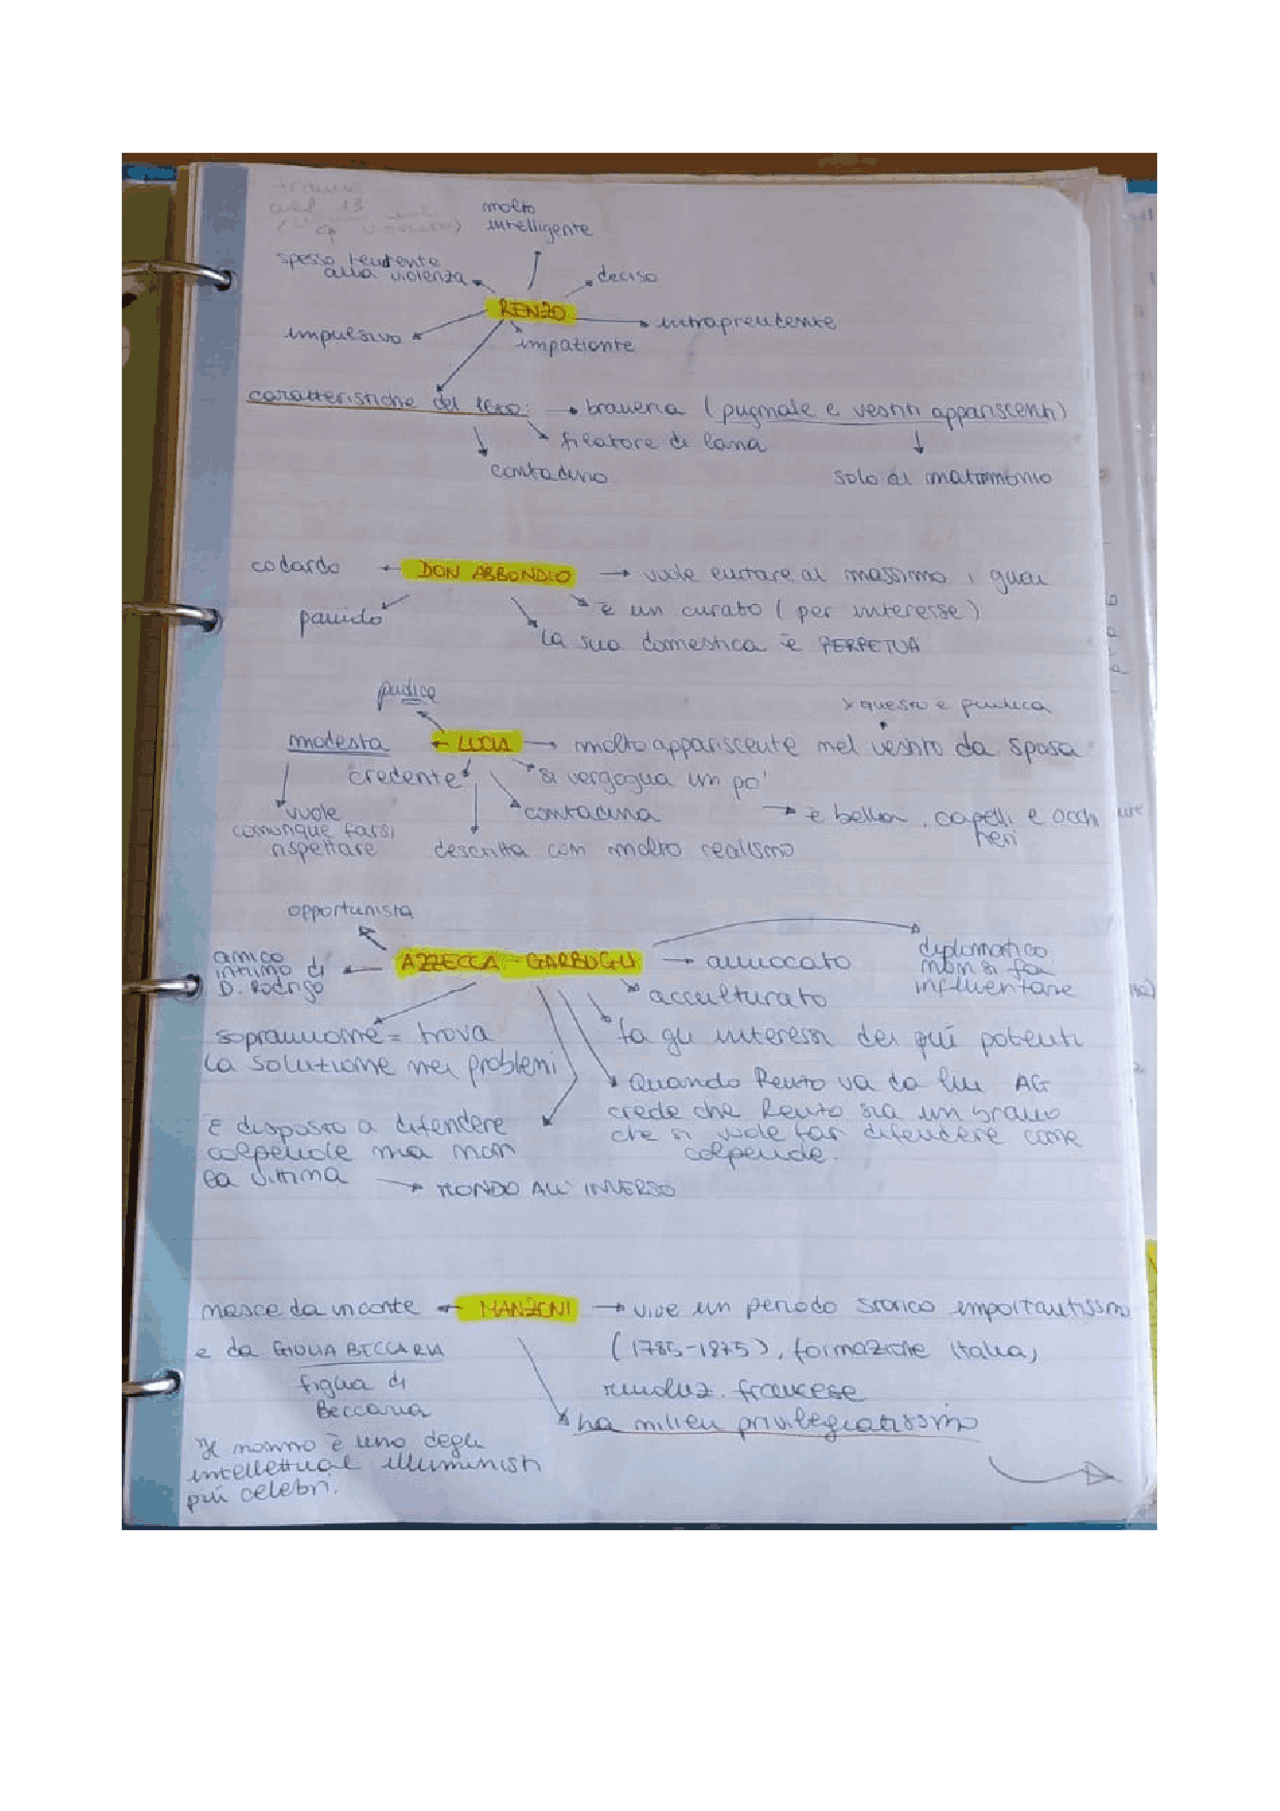 molto
intelligente
spesso tendente
alla violenza
deciso
RENZO
intraprendente
impulsivo
impaziente
caratteristiche del : braveria (pugnale e vestiti appariscenti)
filatore di lana
contadino
solo al matrimonio
codardo DON ABBONDIO vuole evitare al massimo i guai
pauido
è un curato (per interesse)
la sua domestica è PERPETUA
pudica
questo è pudica
modesta LUCIA molto appariscente nel vestito da sposa
credente
si vergogna un po'
vuole
comunque farsi
rispettare
contadina
è bella, capelli e occhi
neri
descritta con molto realismo
opportunista
amico
intimo di
D. Rodrigo
AZZECCA-GARBUGLI
avvocato
diplomatico
non si fa
influentare
acculturato
soprannome = trova
la soluzione nei problemi
fa gli interessi dei più potenti
Quando Renzo va da lui AG
crede che Renzo sia un bravo
che si vuole far difendere come
colpevole.
È disposto a difendere
colpevole ma non
la vittima
MONDO ALL'INVERSO
nasce da un conte MANZONI vive un periodo storico importantissimo
e da GIULIA BECCARIA
(1785-1875), formazione Italia,
figlia di
Beccaria
rivoluz. francese
ha milieu privilegiatissimo
Il nonno è uno degli
intellettuali illuministi
più celebri.